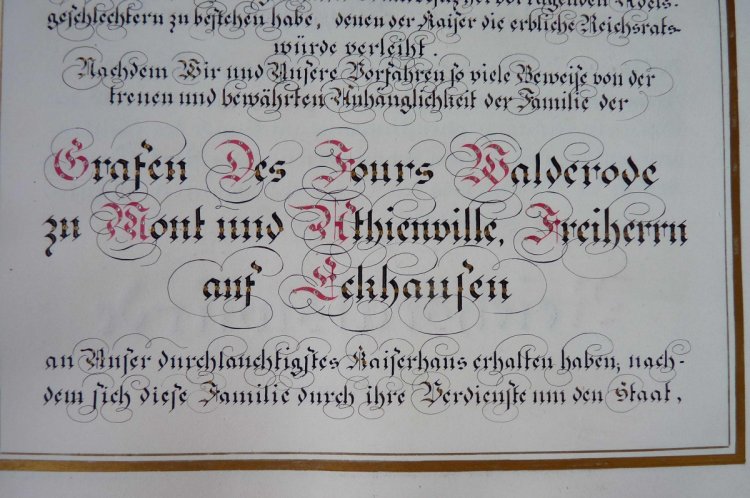 hervorragenden Adels-
geschlechtern zu bestehen habe, denen der Kaiser die erbliche Reichsrats-
würde verleiht.
Nachdem Wir und Unsere Vorfahren so viele Beweise von der
treuen und bewährten Anhänglichkeit der Familie der
Grafen Des Fours Walderode
zu Mont und Athienville, Freiherrn
auf Eckhausen
an Unser durchlauchtigstes Kaiserhaus erhalten haben, nach-
dem sich diese Familie durch ihre Verdienste um den Staat,